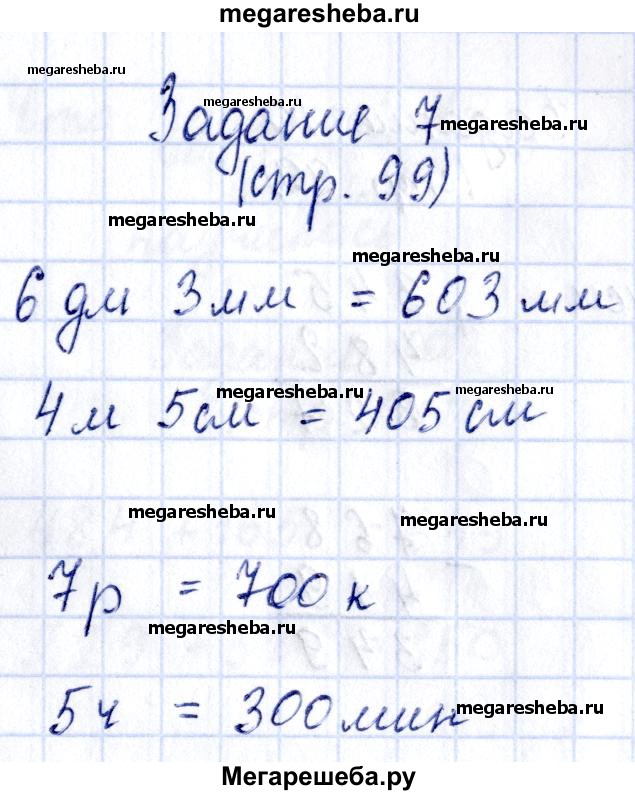 megaresheba.ru
megaresheba.ru
megaresheba.ru
Задание 7
megaresheba.ru
(стр. 99)
megaresheba.ru
megaresheba.ru
6 дм 3 мм = 603 мм
megaresheba.ru megaresheba.ru
4 м 5 см = 405 см
megaresheba.ru megaresheba.ru
7 р = 700 к
megaresheba.ru
5 ч = 300 мин
megaresheba.ru
Мегарешеба.ру